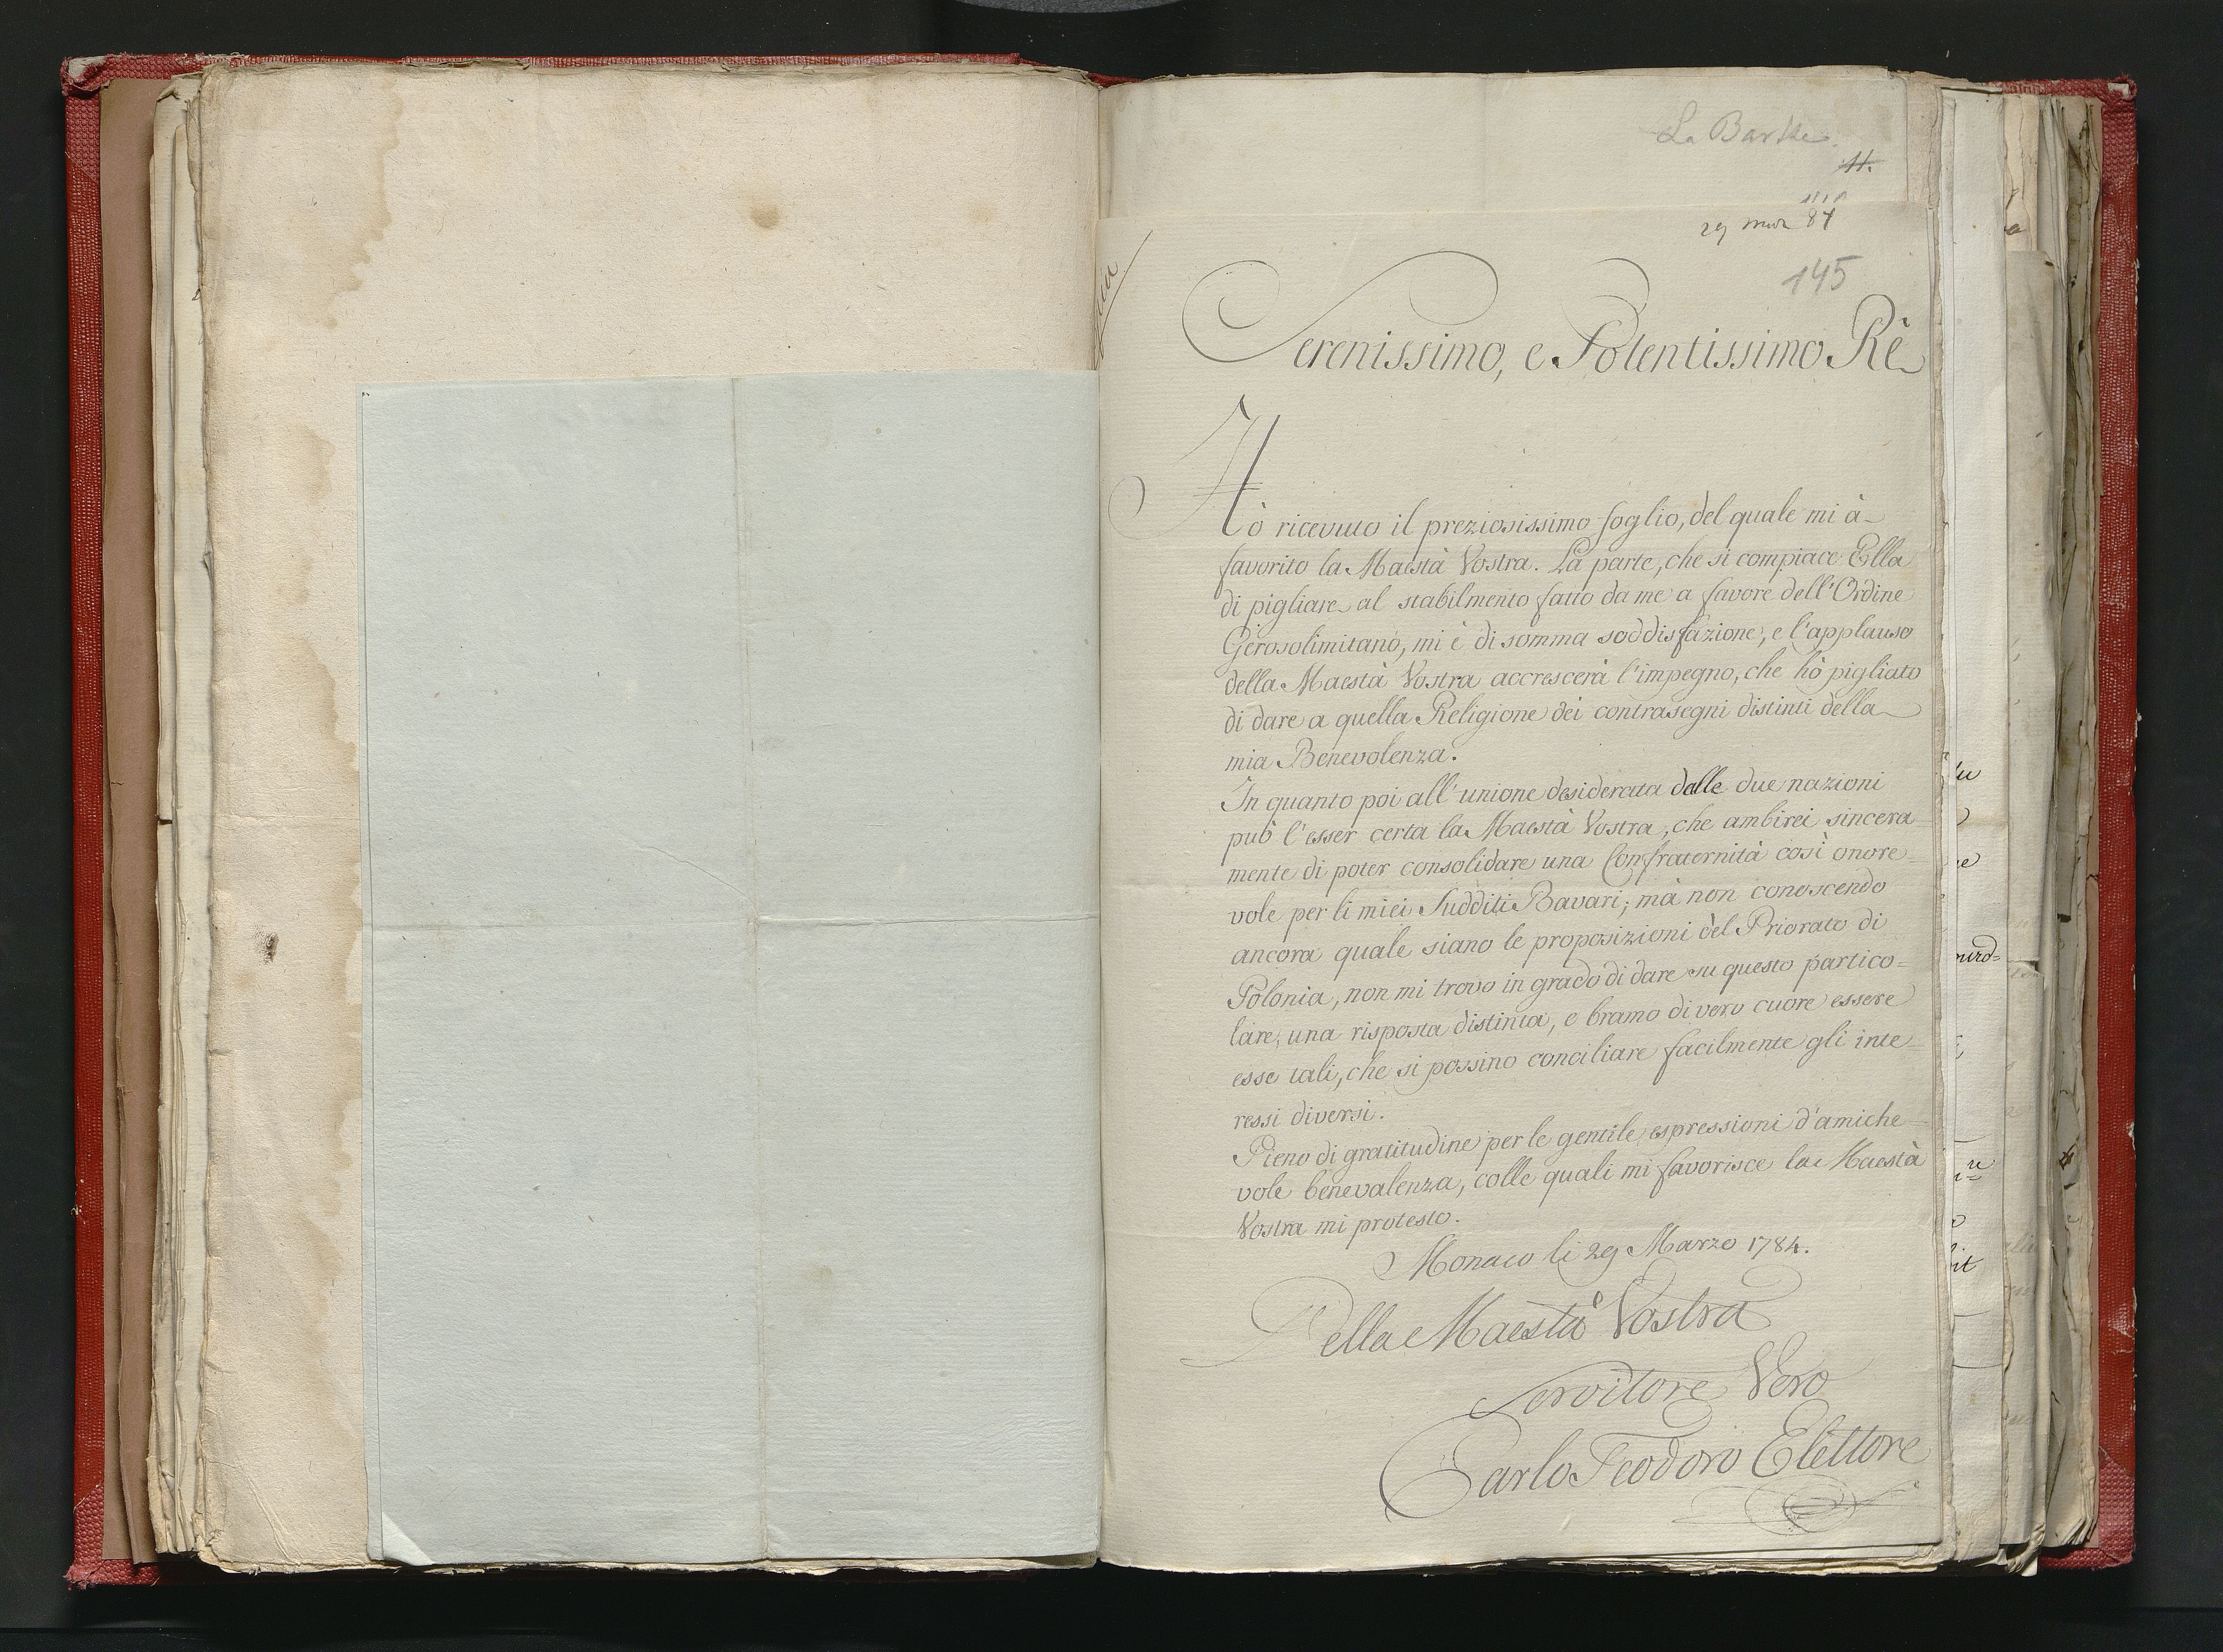 La Barthe
11.
29 mar 84
145
Serenissimo, e Potentissimo Rè
Hò ricevuto il preziosissimo foglio, del quale mi à
favorito la Maestà Vostra. La parte, che si compiace Ella
di pigliare al stabilmento fatto da me a favore dell'Ordine
Gerosolimitano, mi è di somma soddisfazione, e l'applauso
della Maestà Vostra accrescerà l'impegno, che hò pigliato
di dare a quella Religione dei contrasegni distinti della
mia Benevolenza.
In quanto poi all'unione desiderata delle due nazioni
può l'esser certa la Maestà Vostra, che ambirei sincera
mente di poter consolidare una Confraternità così onore=
vole per li miei Sudditi Bavari; mà non conoscendo
ancora quale siano le proposizioni del Priorato di
Polonia, non mi trovo in grado di dare su questo partico=
lare, una risposta distinta, e bramo di vero cuore essere
esse tali, che si possino conciliare facilmente gli inte=
ressi diversi.
Pieno di gratitudine per le gentile espressioni d'amiche
vole benevalenza, colle quali mi favorisce la Maestà
Vostra mi protesto.
Monaco li 29 Marzo 1784.
Della Maestà Vostra
Servitore Vero
Carlo Teodoro Elettore